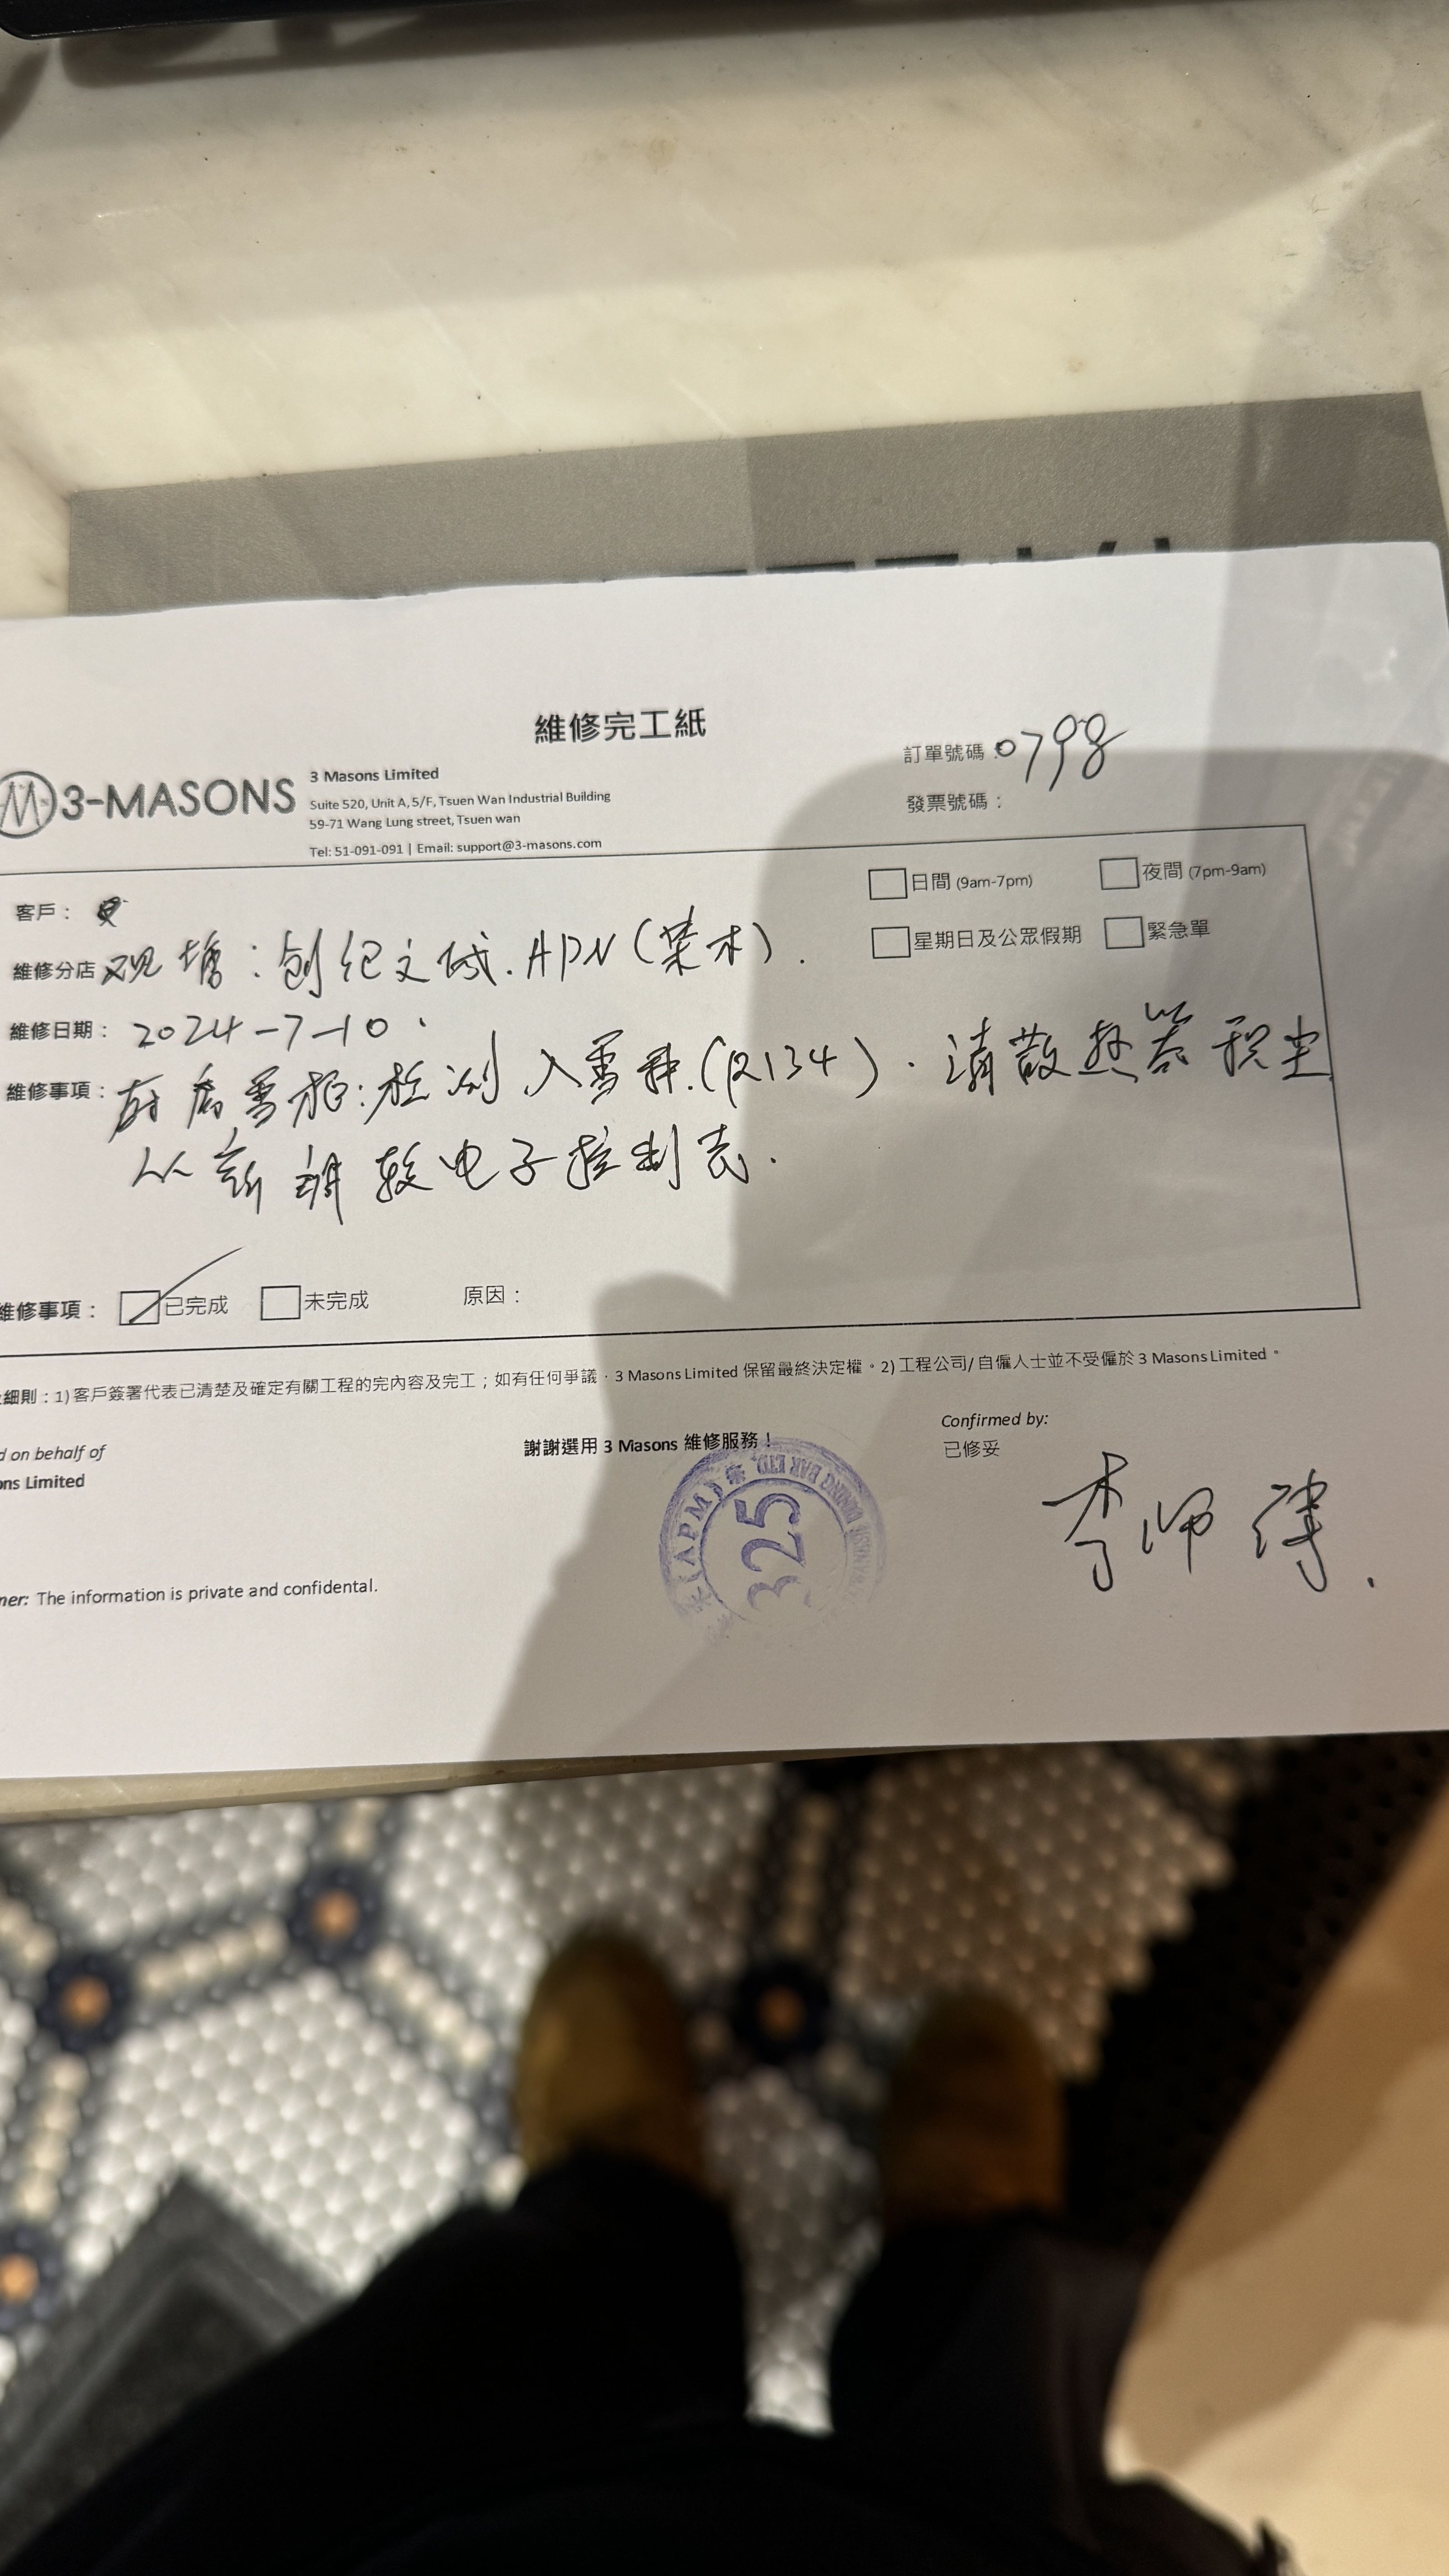 維修完工紙
3-MASONS
3 Masons Limited
Suite 520, Unit A, 5/F, Tsuen Wan Industrial Building
59-71 Wang Lung street, Tsuen wan
Tel: 51-091-091 | Email: support@3-masons.com
訂單號碼：0798
發票號碼：
客戶：
日間 (9am-7pm)
夜間 (7pm-9am)
維修分店 观塘：创纪文城. APM (葉木).
星期日及公眾假期
緊急單
維修日期：2024-7-10
維修事項：雪柜：检测入雪种.(R134)．清散热器积尘
电子控制
維修事項：
已完成
未完成
原因：
細則：1) 客戶簽署代表已清楚及確定有關工程的完內容及完工；如有任何爭議，3 Masons Limited 保留最終決定權。2) 工程公司/自僱人士並不受僱於 3 Masons Limited。
d on behalf of
ons Limited
謝謝選用 3 Masons 維修服務！
Confirmed by:
已修妥
李师傅.
(APM)
DINING BAR LTD.
325
ner: The information is private and confidental.